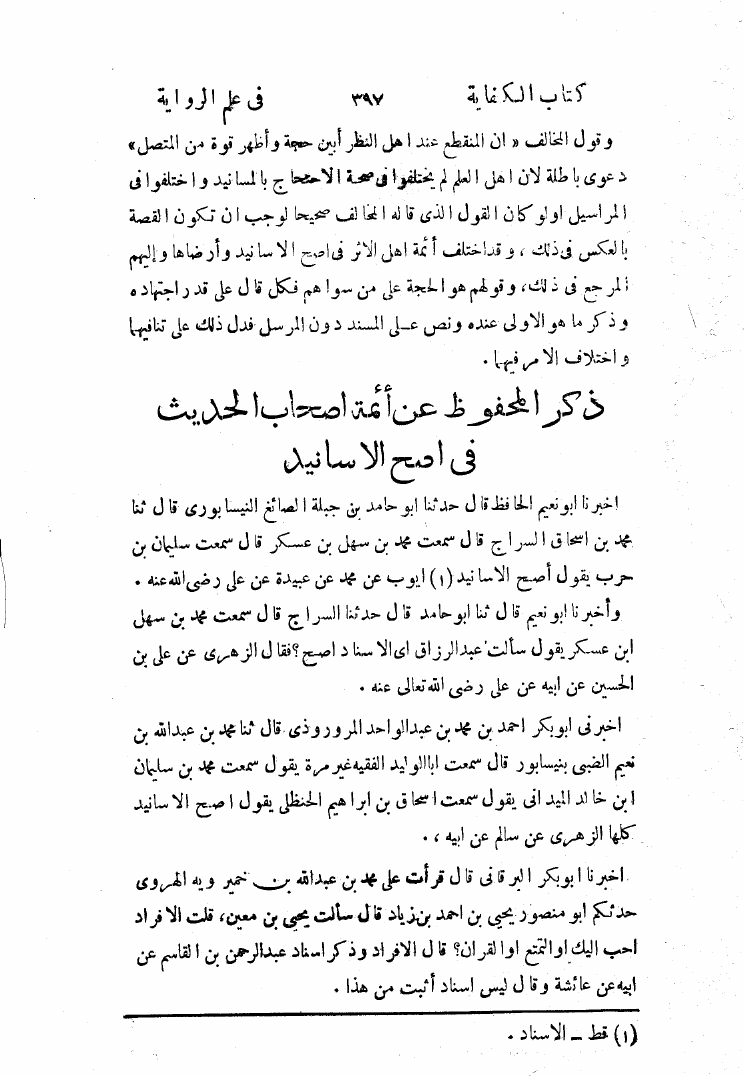 كتاب الكفاية ٣٩٧ فى علم الرواية
وقول المخالف « ان المنقطع عند اهل النظر أبين حجة وأظهر قوة من المتصل»
دعوى باطلة لان اهل العلم لم يختلفوا فى صحة الاحتجاج بالمسانيد واختلفوا فى
المراسيل اولو كان القول الذى قاله المخالف صحيحا لوجب ان تكون القصة
بالعكس فى ذلك ، وقد اختلف أئمة اهل الاثر فى اصح الاسانيد وأرضاها وإليهم
المرجع فى ذلك، وقولهم هو الحجة على من سواهم فكل قال على قدر اجتهاده
وذكر ما هو الاولى عنده ونص عـلى المسند دون المرسل فدل ذلك على تنافيها
واختلاف الامر فيها .
ذكر المحفوظ عن أئمة اصحاب الحديث
فى اصح الاسانيد
اخبرنا ابو نعيم الحافظ قال حدثنا ابو حامد بن جبلة الصائغ النيسابورى قال ثنا
محمد بن اسحاق السراج قال سمعت محمد بن سهل بن عسكر قال سمعت سليمان بن
حرب يقول أصح الاسانيد (١) ايوب عن محمد عن عبيدة عن على رضى الله عنه .
وأخبرنا ابو نعيم قال ثنا ابو حامد قال حدثنا السراج قال سمعت محمد بن سهل
ابن عسكر يقول سألت عبدالرزاق اى الاسناد اصح؟ فقال الزهرى عن على بن
الحسين عن ابيه عن على رضى الله تعالى عنه .
اخبرنى ابوبكر احمد بن محمد بن عبدالواحد المروروذى قال ثنا محمد بن عبدالله بن
نعيم الضبى بنيسابور قال سمعت اباالوليد الفقيه غير مرة يقول سمعت محمد بن سليمان
ابن خالد الميدانى يقول سمعت اسحاق بن ابراهيم الحنظلى يقول اصح الاسانيد
كلها الزهرى عن سالم عن ابيه ، .
اخبرنا ابوبكر البرقانى قال قرأت على محمد بن عبدالله بن خميرويه الهروى
حدثكم ابو منصور يحيى بن احمد بن زياد قال سألت يحيى بن معين، قلت الافراد
احب اليك اوالتمتع اوالقران؟ قال الافراد وذكر اسناد عبدالرحمن بن القاسم عن
ابيه عن عائشة وقال ليس اسناد أثبت من هذا .
(١) قط ـ الاسناد .